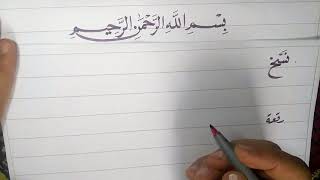 بِسْمِ اللَّهِ الرَّحْمٰنِ الرَّحِيمِ
نَسْخ
رقعة